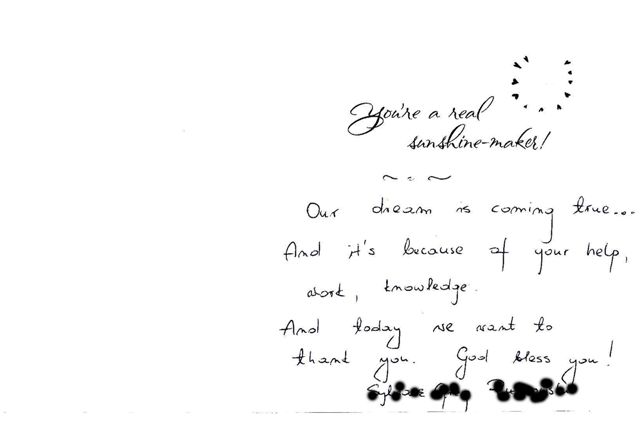 You're a real
sunshine-maker!
Our dream is coming true...
And it's because of your help,
work, knowledge.
And today we want to
thank you. God bless you!